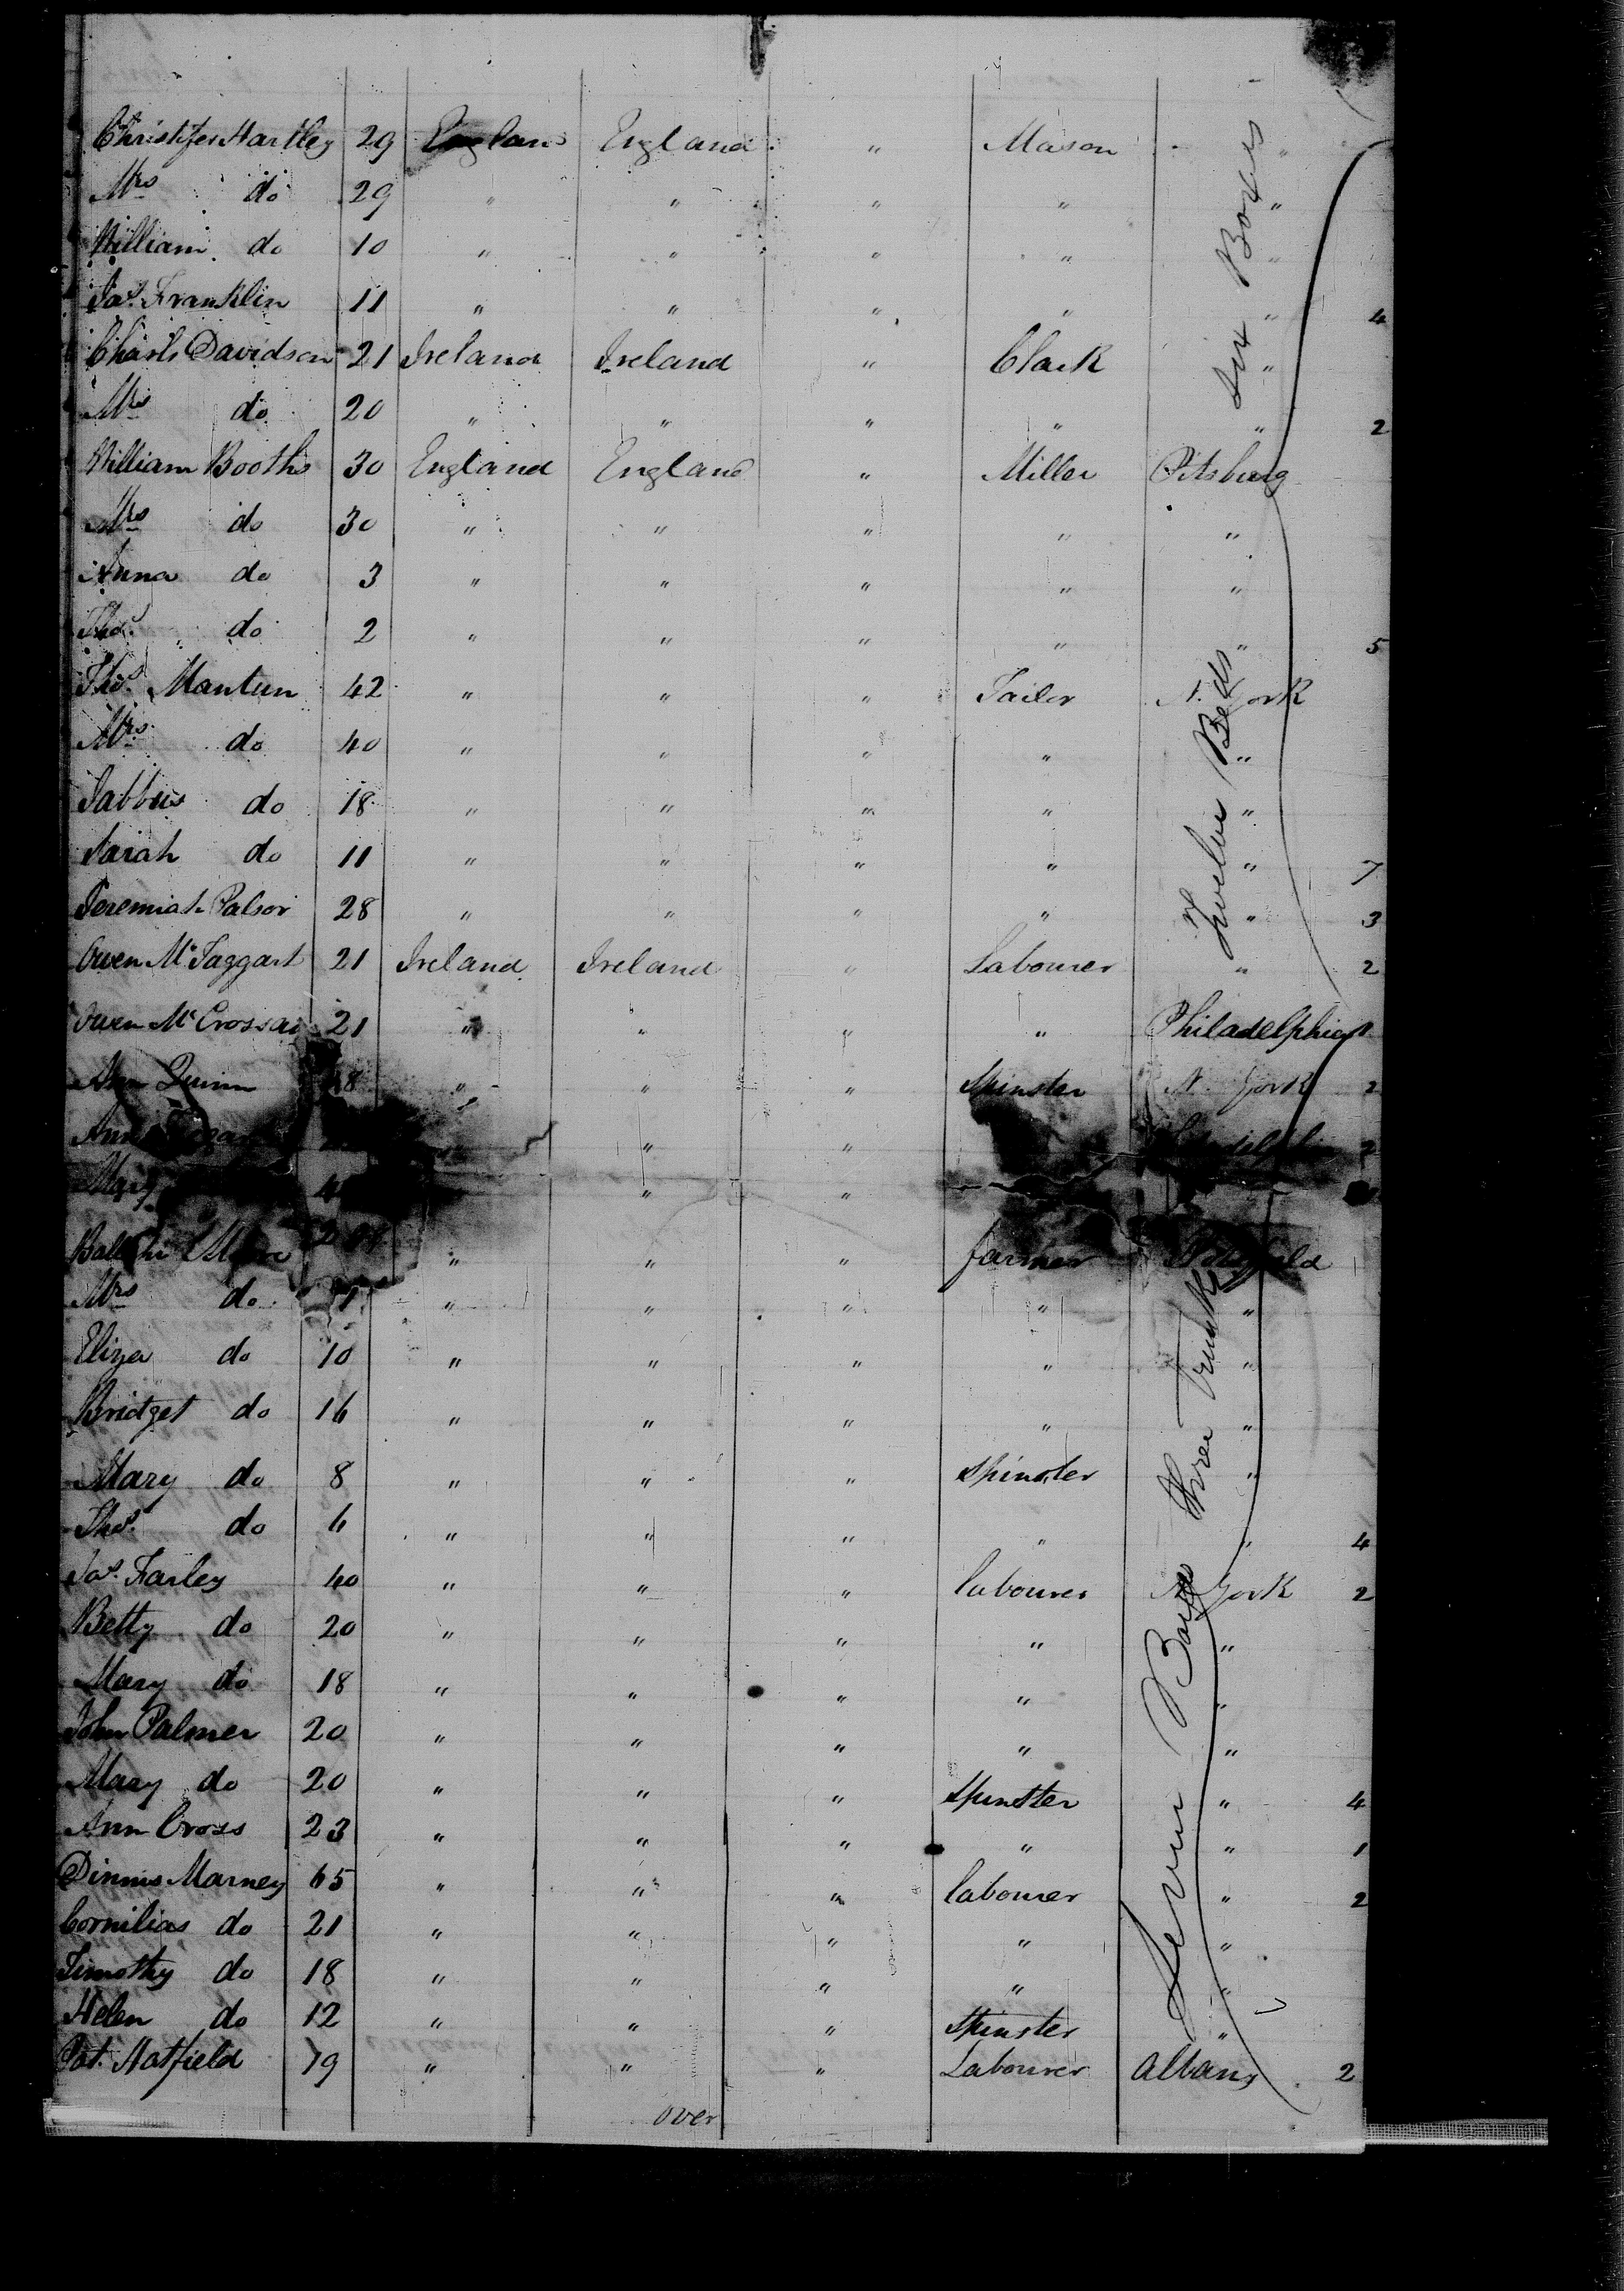 Christifer Hartley 29 England England " Mason "
Mrs do 29 " " " " "
William do 10 " " " " "
Jas. Franklin 11 " " " " " 4
Charls Davidson 21 Ireland Ireland " Clark "
Mrs do 20 " " " " " 2
William Booths 30 England England " Miller Pitsburg
Mrs do 30 " " " " "
Anna do 3 " " " " "
Thos. do 2 " " " " " 5
Thos. Mantun 42 " " " Tailor N. York
Mrs do 40 " " " " "
do 18 " " " " "
Sarah do 11 " " " " " 7
Jeremiah Palsor 28 " " " " " 3
Owen McTaggart 21 Ireland Ireland " Labourer " 2
Owen McCrossan 21 " " " " Philadelphia 1
Ann Quinn 18 " " " Spinster N. York 2
Ann " " 2
Mary " "
" " " farmer
Mrs do " " " " "
Eliza do 10 " " " " "
Bridget do 16 " " " " "
Mary do 8 " " " Spinster "
Thos. do 6 " " " " " 4
Jas. Farley 40 " " " labourer N York 2
Betty do 20 " " " " "
Mary do 18 " " " " "
John Palmer 20 " " " " "
Mary do 20 " " " Spinster " 4
Ann Cross 23 " " " " " 1
Dinnis Marney 65 " " " labourer " 2
Cornilias do 21 " " " " "
Timothy do 18 " " " " "
Helen do 12 " " " Spinster "
Pat. Hatfield 19 " " " Labourer Albany 2
over
Six Boxes
Twelve Beds
three Trunks
Seven Boxes